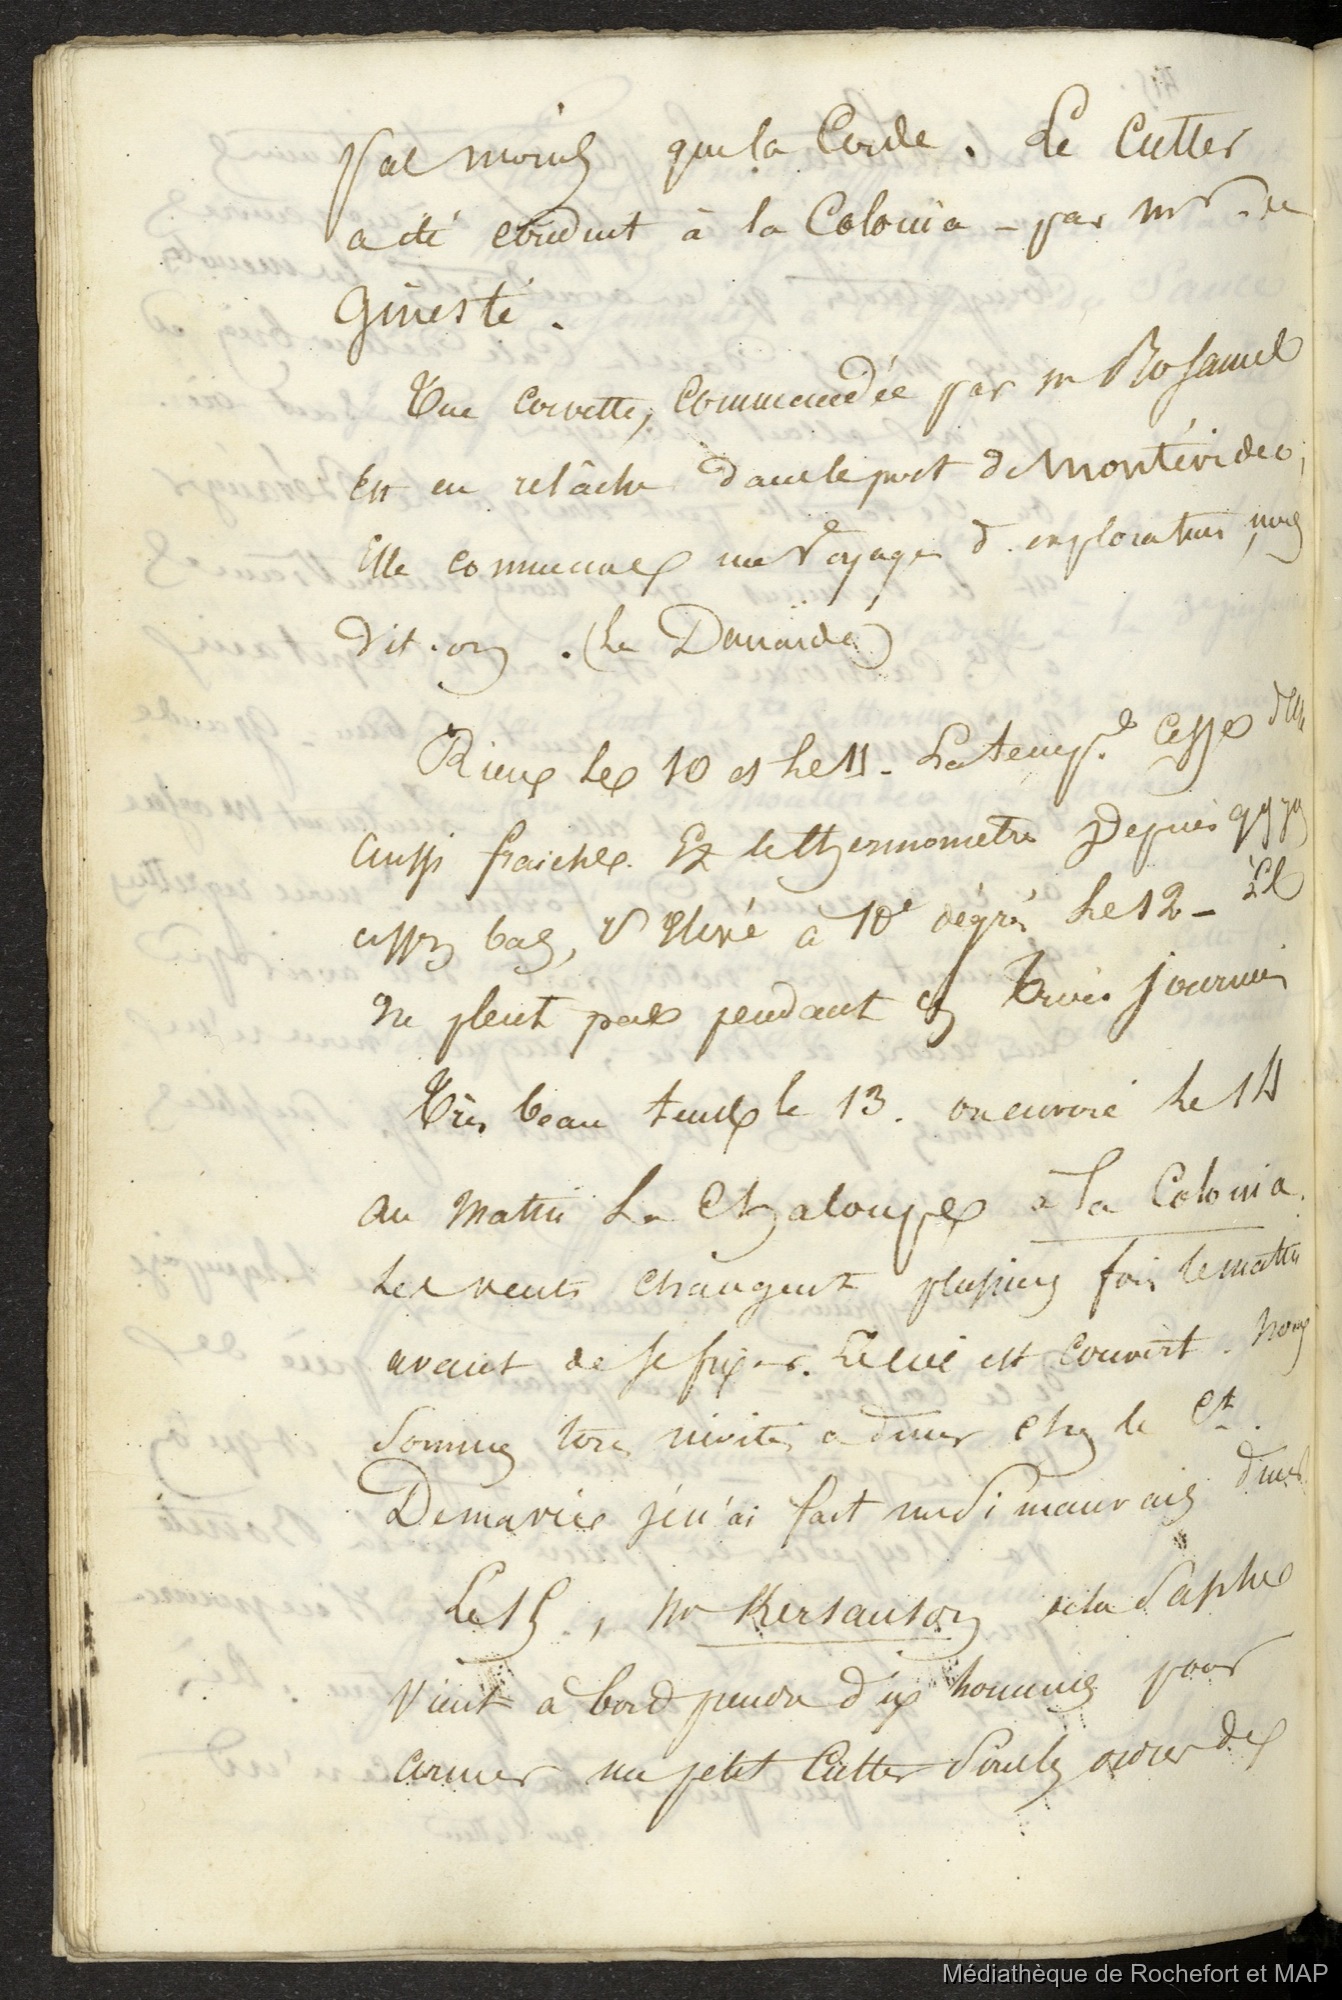 pas moins que la Corde. Le Cutter
a été conduit à la Colonia - par Mr de
Ginesté.
Une corvette, commandée par m Rosamel
est en relâche dans le port de Montévideo,
Elle commence un voyage d'exploration, nous
dit-on. (La Danaïde)
Rien les 10 et le 11 - La tempe. cesse d'être
aussi fraiche. Et le thermomètre depuis qq js
assez bas, s'élève à 10° dégrés le 12 - Il
ne pleut pas pendant ces trois journées
Très beau tems le 13. on envoie le 14
au matin La Chaloupe à la Colonia.
Les vents changent plusieurs fois le matin
avant de se fixer. Le ciel est couvert. Nous
sommes tous invités a diner chez le Ct.
Demaries j'en ai fait un si mauvais diner
Le 15, Mr Kersauson de la Sapho
vient à bord prendre dix hommes pour
armer un petit Cutter sous les ordres des
Médiathèque de Rochefort et MAP